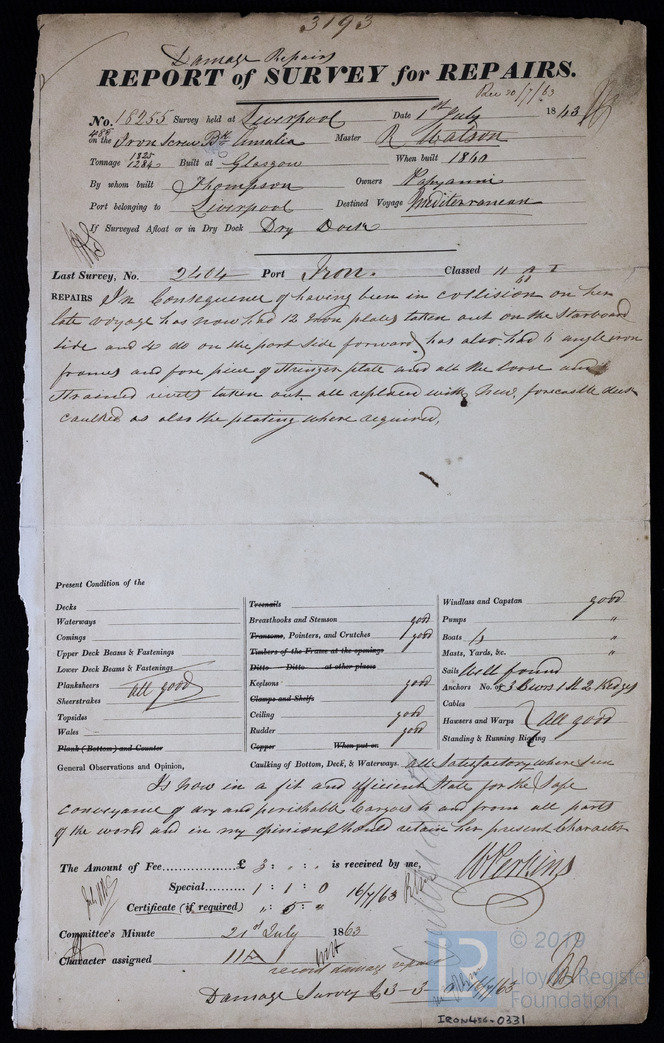 3193
Damage Repairs
REPORT of SURVEY for REPAIRS.
Rec 20/7/63
No. 18255 Survey held at Liverpool Date 1st July 1863
on the Iron Screw Bk Amalia Master R Watson
Tonnage 1825 1284 Built at Glasgow When built 1860
By whom built Thompson Owners Papyanni
Port belonging to Liverpool Destined Voyage Mediterranean
If Surveyed Afloat or in Dry Dock Dry Dock
Last Survey, No. 2404 Port Iron. Classed 11 A 1
REPAIRS In Consequence of having been in collision on her
late voyage has now had 12 Iron plates taken out on the Starboard
side and 4 do on the port side forward has also had 6 angle iron
frames and fore piece of Stringer plate and all the loose and
strained rivets taken out all replaced with New, forecastle deck
caulked as also the plating where required,
Present Condition of the
Decks
Waterways
Comings
Upper Deck Beams & Fastenings
Lower Deck Beams & Fastenings
Planksheers all good
Sheerstrakes
Topsides
Wales
Plank (Bottom) and Counter
Treenails
Breasthooks and Stemson good
Transoms, Pointers, and Crutches good
Timbers of the Frame at the openings
Ditto Ditto at other places
Keelsons good
Clamps and Shelfs
Ceiling good
Rudder good
Copper When put on
Windlass and Capstan good
Pumps "
Boats 6 "
Masts, Yards, &c. "
Sails Well found
Anchors No. of 3 Bowrs 1 St 2 Kedges
Cables
Hawsers and Warps All good
Standing & Running Rigging
General Observations and Opinion, Caulking of Bottom, Deck, & Waterways. all Satisfactory where seen
Is now in a fit and efficient State for the Safe
conveyance of dry and perishable Cargoes to and from all parts
of the world and in my opinion should retain her present Character
The Amount of Fee £ 3 : " : " is received by me,
Special 1 : 1 : 0 16/7/63
Certificate (if required) " : 5 : "
W Perkins
Committee's Minute 21st July 1863
Character assigned 11 A 1
record damage repairs
Damage Survey £3-3-0 16/7/63
© 2019
Lloyd's Register
Foundation
IRON456-0331